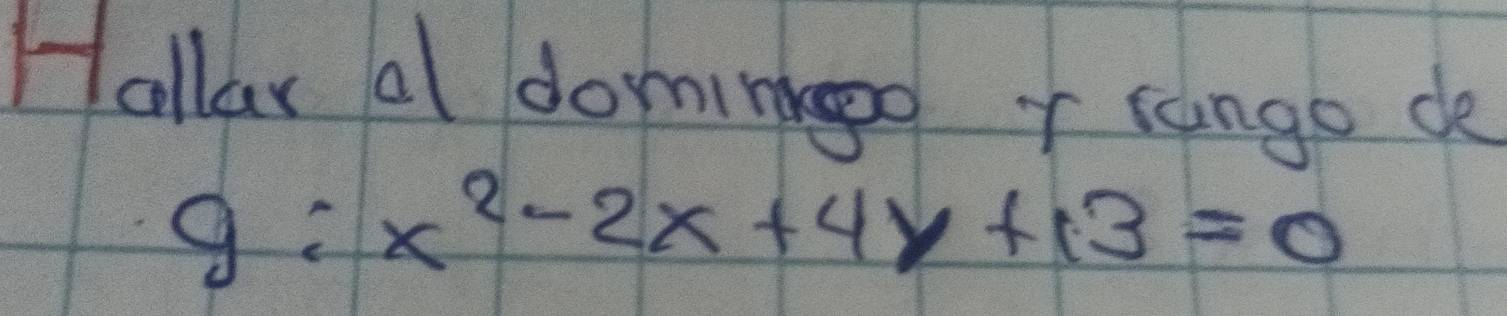 Hallar al dominio y rango de
g : x² - 2x + 4y + 13 = 0